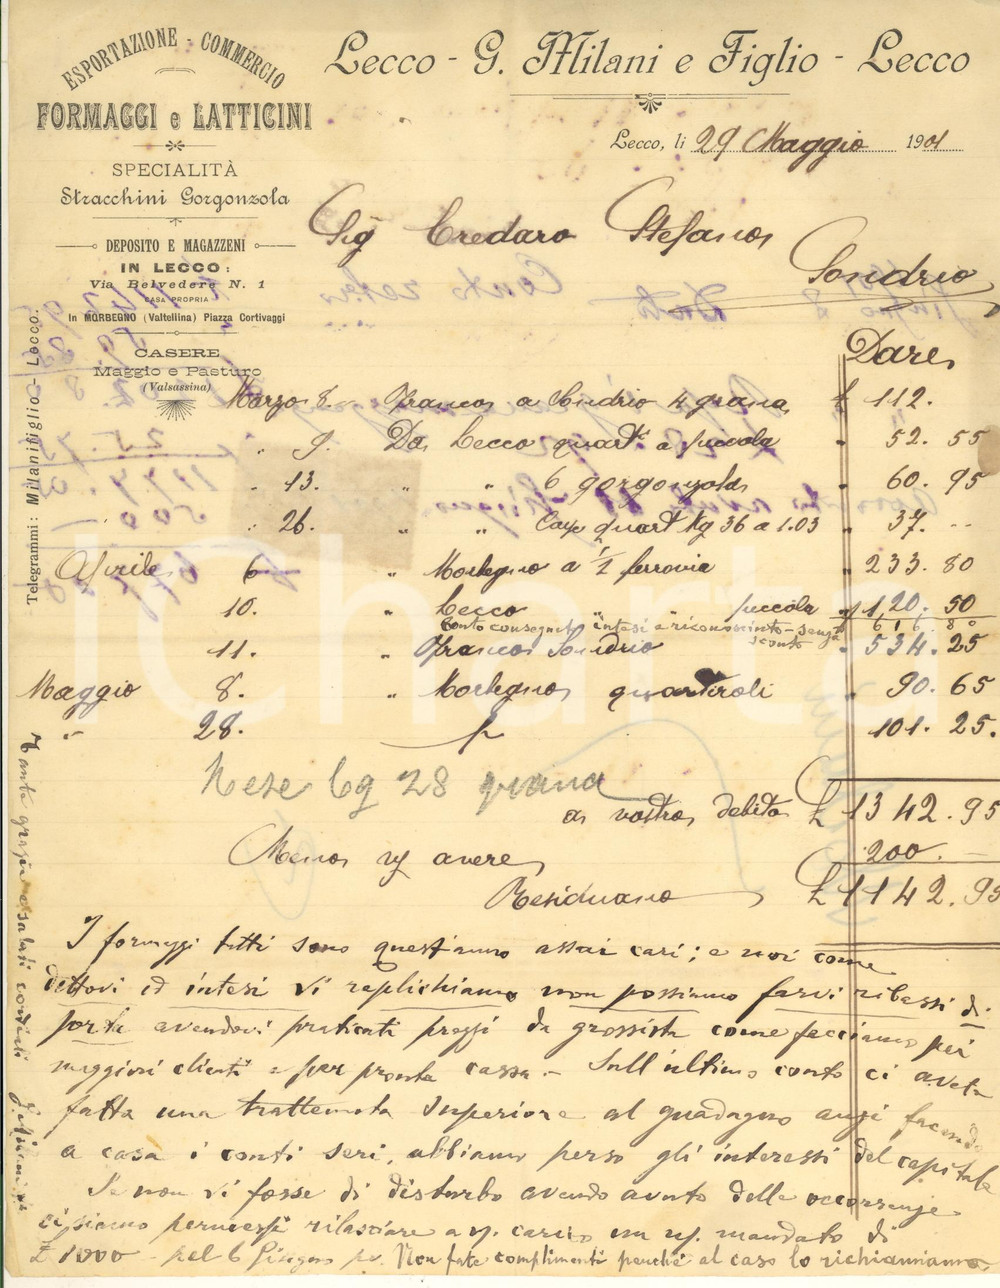 ESPORTAZIONE - COMMERCIO
FORMAGGI e LATTICINI
SPECIALITÀ
Stracchini Gorgonzola
DEPOSITO E MAGAZZENI
IN LECCO:
Via Belvedere N. 1
CASA PROPRIA
In MORBEGNO (Valtellina) Piazza Cortivaggi
CASERE
Maggio e Pasturo
(Valsassina)
Telegrammi: Milanifiglio - Lecco.
Lecco - G. Milani e Figlio - Lecco
Lecco, li 29 Maggio 1901
Sig Credaro Stefano
Sondrio
Dare
Marzo 8. Franco a Sondrio 4 grana £ 112.
" 9. Da Lecco quart a piccola " 52. 55
" 13. " " 6 gorgonzola " 60. 95
" 26. " " Cap quart Kg 36 a 1.03 " 37. --
Aprile 6 " Morbegno a 1/2 ferrovia " 233. 80
10. " Lecco " piccola " 120. 50
Conto consegnato intesi e riconosciuto - senza sconto 616. 80
11. " Franco Sondrio " 534. 25
Maggio 8. " Morbegno quartiroli " 90. 65
" 28. 101. 25.
Kg 28 grana
a vostro debito £ 1342. 95
Meno vs avere 200. -
Residuano £ 1142. 95
I formaggi tutti sono quest'anno assai cari; e noi come
dettovi ed intesi vi replichiamo non possiamo farvi ribassi di
porto avendovi praticati prezzi da grossista come facciamo pei
maggiori clienti e per pronta cassa. - Sull'ultimo conto ci avete
fatta una trattenuta superiore al guadagno anzi facendo
a casa i conti seri, abbiamo perso gli interessi del capitale
Se non vi fosse di disturbo avendo avuto delle occorrenze
ci siamo permessi rilasciare a vs. carico un vs. mandato di
£ 1000 - pel 6 Giugno pv. Non fate complimenti perchè al caso lo richiamiamo.
Tante grazie e saluti cordiali G. Milani
iCharta